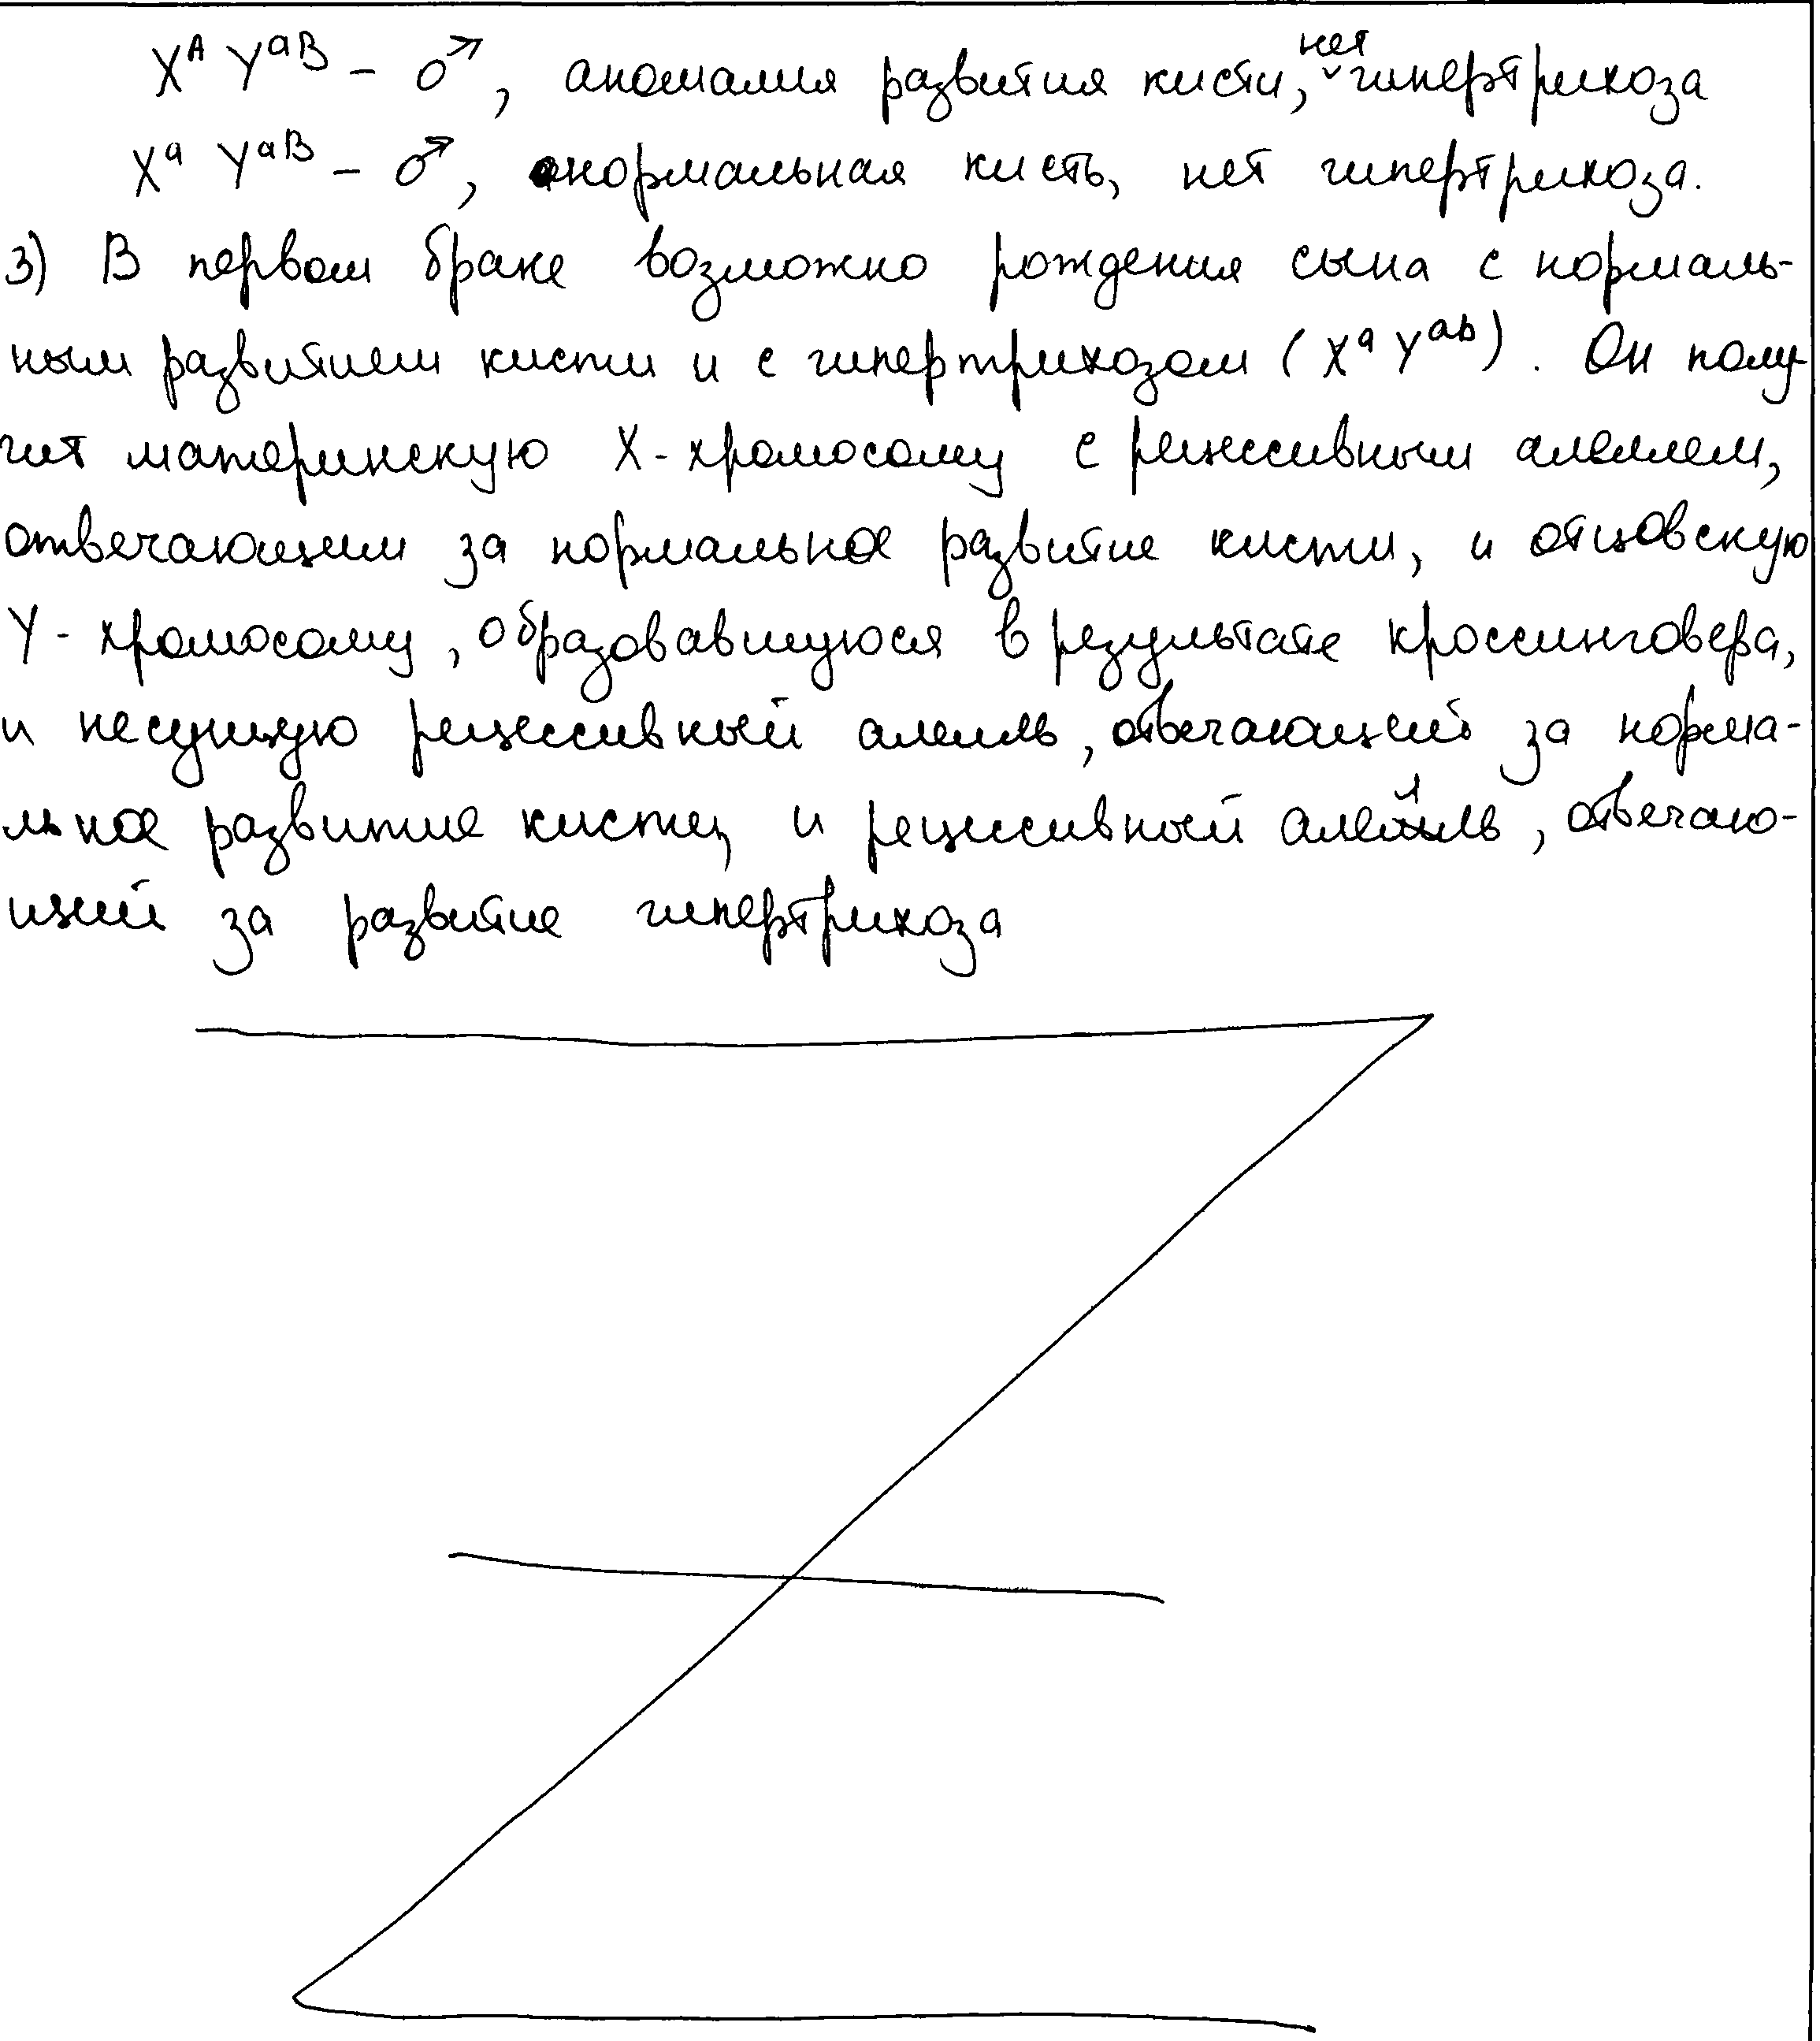 X^A Y^aB – ♂, аномалия развития кисти, нет гипертрихоза
X^a Y^aB – ♂, нормальная кисть, нет гипертрихоза.
3) В первом браке возможно рождения сына с нормаль-
ным развитием кисти и с гипертрихозом (X^a Y^ab). Он полу-
чит материнскую X-хромосому с рецессивным аллелем,
отвечающим за нормальное развитие кисти, и отцовскую
Y-хромосому, образовавшуюся в результате кроссинговера,
и несущую рецессивный аллель, отвечающий за норма-
льное развитие кисти, и рецессивный аллель, отвечаю-
щий за развитие гипертрихоза